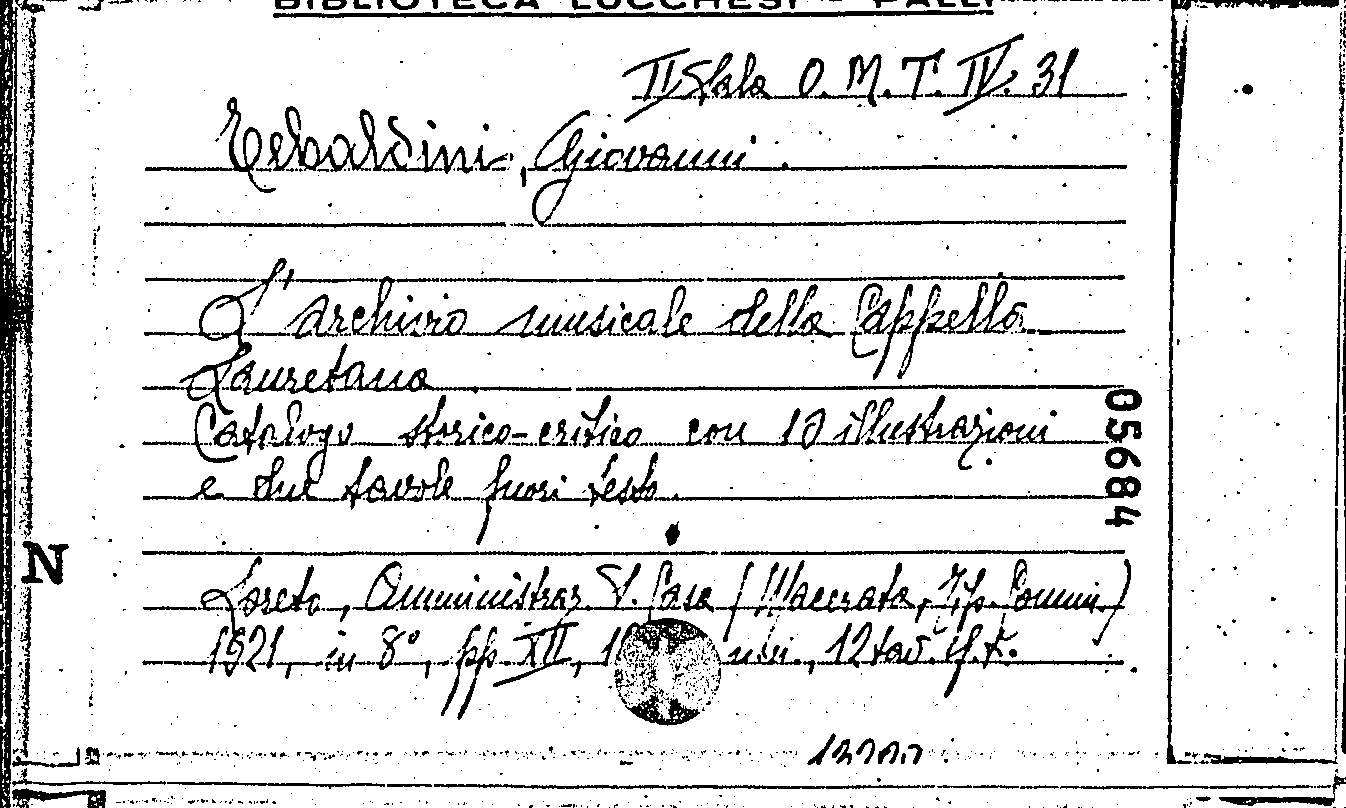 BIBLIOTECA LUCCHESI - PALLI
II Sala O. M. T. IV. 31
Tebaldini, Giovanni.
L'archivio musicale della Cappella
Lauretana.
Catalogo storico-critico con 10 illustrazioni
e due tavole fuori testo.
05684
N
Loreto, Amministraz. S. Casa (Macerata, Tip. Commi.)
1921, in 8°, pp XII, 12 tav. f. t.